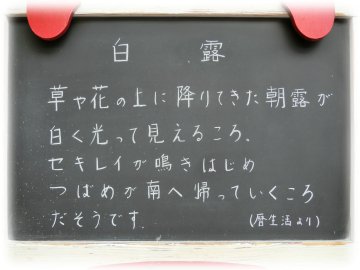 白露
草や花の上に降りてきた朝露が
白く光って見えるころ、
セキレイが鳴きはじめ
つばめが南へ帰っていくころ
だそうです。
(暦生活より)